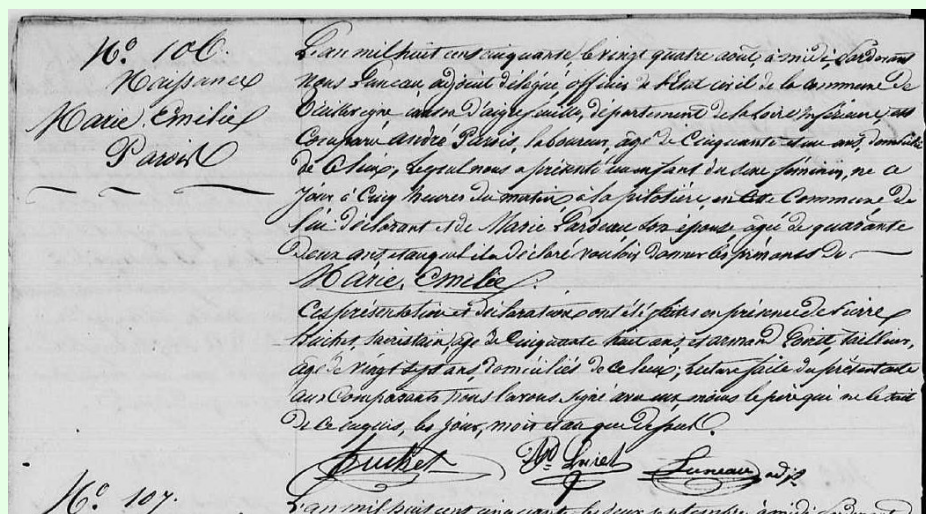 N.º 106.
Naissance
Marie Emilie
Parois
L'an mil huit cent cinquante, le vingt quatre août, à midi, Pardevant
nous Luneau adjoint délégué officier de l'état civil de la Commune de
canton d'aigrefeuille, département de la Loire inférieure, est
Comparu andré Parois, laboureur, âgé de Cinquante et un ans, domicilié
de Ce lieu, lequel nous a présenté un enfant du sexe féminin, né ce
jour à Cinq heures du matin à la pilotière, en Cette Commune de
lui déclarant et de Marie Pardeau son épouse agée de quarante
deux ans et auquel il a déclaré vouloir donner les prénoms de
Marie, Emilie.
Ces présentation et déclaration ont été faites en présence de Pierre
Huchet, sacristain, âgé de Cinquante huit ans, et armand Poiret, tailleur,
âgé de vingt sept ans, domiciliés de ce lieu; Lecture faite du présent acte
aux Comparants Nous l'avons signé avec eux moins le père qui ne le sait
de ce enquis, les jour, mois et an que dessus.
Huchet Ad Poiret Luneau adjt
N.º 107.
L'an mil huit cent cinquante, le deux septembre, à midi, Pardevant